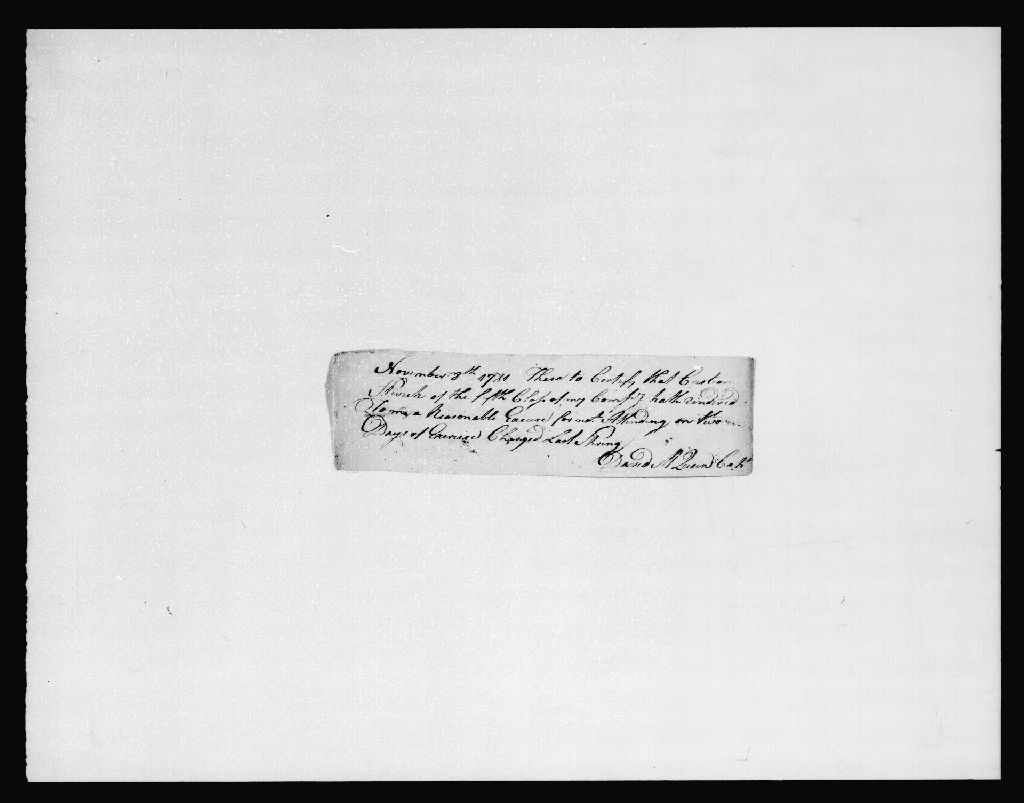 November 8th 1781 These to Certify that Caster
of the fifth Class of my Compy hath rendered
to me a Reasonable Excuse for not Attending on two
Days of Exercise Charged Last Spring
David McQueen Capt